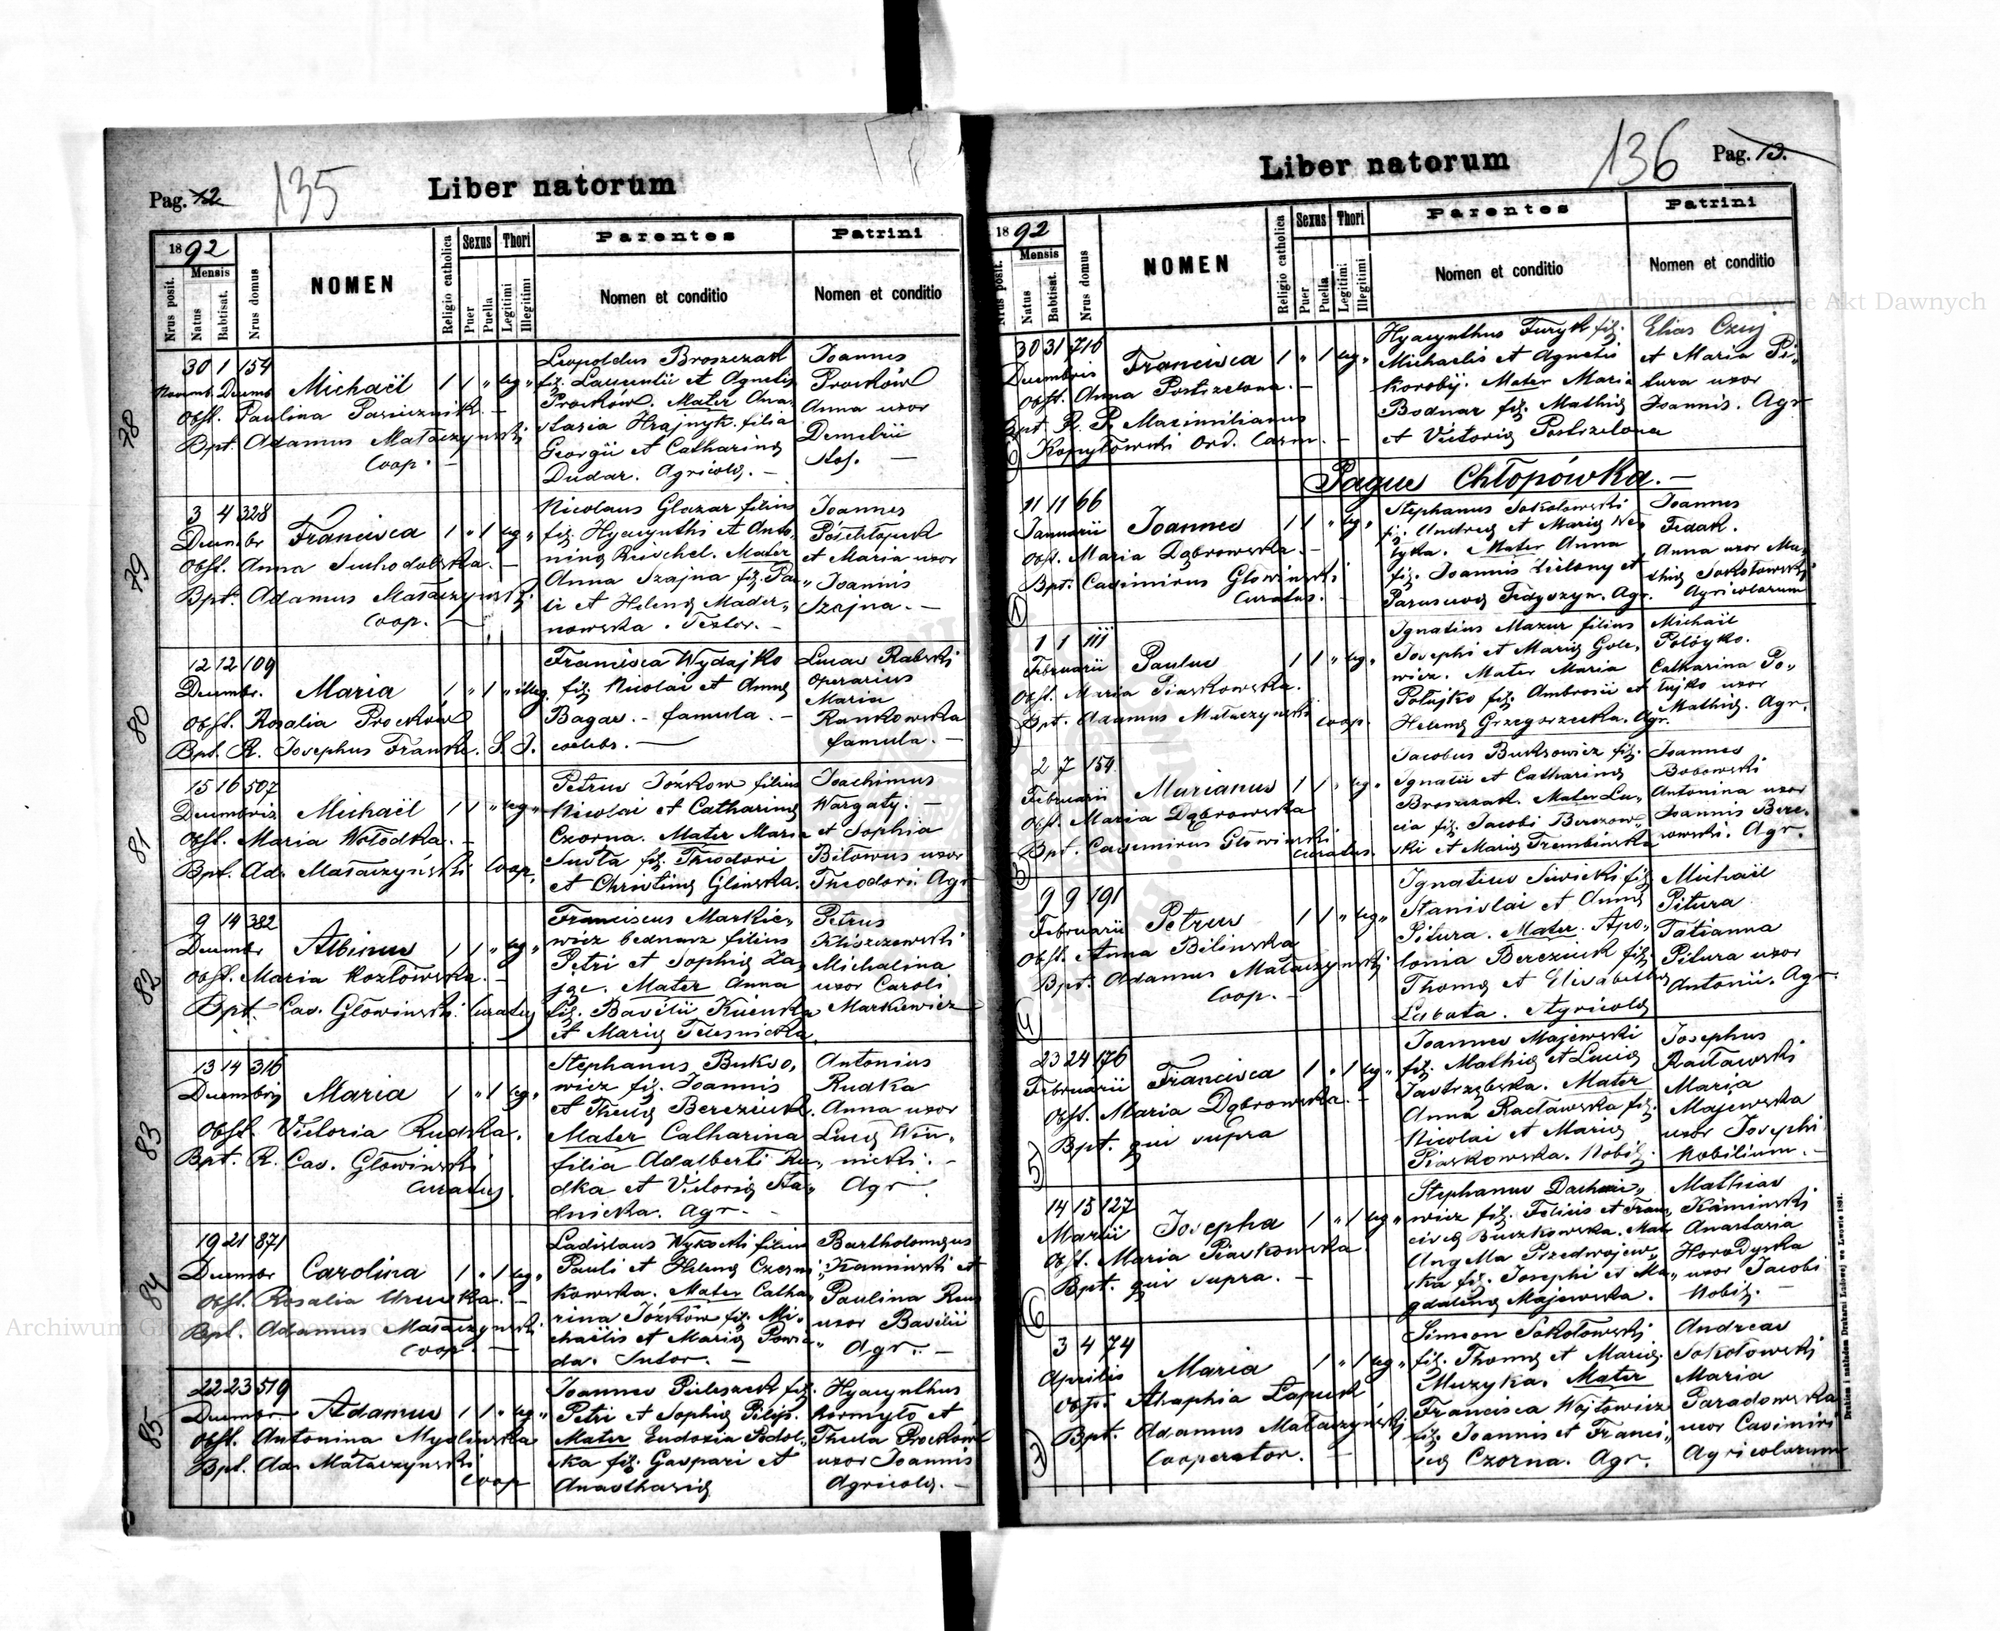 135
Pag. 12
Liber natorum
1892
Mensis
Nrus posit.
Natus
Babtisat.
Nrus domus
NOMEN
Religio catholica
Sexus
Puer
Puella
Thori
Legitimi
Illegitimi
Parentes
Nomen et conditio
Patrini
Nomen et conditio
78
30 1 154
Novemb. Decemb
Michaël 1 1 " leg "
Obst. Paulina
Bpt. Adamus Mataczynski
Coop. —
Leopoldus Broszczak
fil. Laurentii et Agnetis
Proćków. Mater Ana
stasia Hrajnyk filia
Georgii et Catharinę
Dudar. Agricolę. —
Joannes
Proćków
Anna uxor
Demetrii
79
3 4 328
Decembr
Francisca 1 " 1 leg "
Obst. Anna Suchodolska. —
Bpt. Adamus Mataczynski
Coop. —
Nicolaus Glazar filius
fil. Hyacynthi et Anto
ninę Mater
Anna Szajna fil. Pau
li et Helenę Mader
nowska. Textor. —
Joannes
et Maria uxor
" Joannis
Szajna. —
80
12 12 109
Decembr.
Maria 1 " 1 " illeg.
Obst. Rosalia Proćków
Bpt. R. Josephus Franke. S. J.
Francisca Wydajko
fil. Nicolai et Annę
Bagar. — famula. —
coelebs. —
Lucas Rabski
operarius
Maria
Rankowska
famula. —
81
15 16 507
Decembris
Michaël 1 1 " leg "
Obst. Maria Wołodka. —
Bpt. Ad. Mataczyński Coop.
Petrus Józkow filius
Nicolai et Catharinę
Czorna. Mater Maria
Susta fil. Theodori
et Christinę Glinska.
Joachimus
Wargaty. —
et Sophia
Bilowus uxor
Theodori. Agr
82
9 14 382
Decembr
Albinus 1 1 " leg "
Obst. Maria Kozłowska. —
Bpt. Cas. Głowinski Curatus
Franciscus Markie
wicz bednarz filius
Petri et Sophię Za
jąc. Mater Anna
fil. Basilii
et Marię
Petrus
Kliszczewski
Michalina
uxor Caroli
Markiewicz
83
13 14 316
Decembris
Maria 1 " 1 leg "
Obst. Victoria Rudka.
Bpt. R. Cas. Głowinski
Curatus.
Stephanus Bukso
wicz fil. Joannis
et Theclę Bereziuk.
Mater Catharina
filia Adalberti Ru
dka et Victorię Sta
dnicka. Agr. —
Antonius
Rudka
Anna uxor
Lucę Win
nicki. —
Agr.
84
19 21 871
Decembr
Carolina 1 " 1 leg "
Obst. Rosalia —
Bpt. Adamus Mataczynski
Coop. —
Ladislaus Wysocki filius
Pauli et Helenę Czerni
kowska. Mater Catha
rina Józków fil. Mi
chaëlis et Marię
da. Sutor. —
Bartholomęus
Kaminski et
Paulina
uxor Basilii
Agr. —
85
22 23 519
Decembr.
Adamus 1 1 " leg "
Obst. Antonina Myslinska
Bpt. Ad. Mataczynski
Coop
Joannes Pieleszek fil.
Petri et Sophię Pilip.
Mater Eudoxia Podol
ska fil. Gaspari et
Anasthasię
Hyacynthus
Kormyło et
Thecla Proćków
uxor Joannis
Agricolę. —
136
Pag. 13.
Liber natorum
1892
Mensis
Nrus posit.
Natus
Babtisat.
Nrus domus
NOMEN
Religio catholica
Sexus
Puer
Puella
Thori
Legitimi
Illegitimi
Parentes
Nomen et conditio
Patrini
Nomen et conditio
30 31 716
Decembris
Francisca 1 " 1 leg "
Obst. Anna Postrzelona. —
Bpt. R. P. Maximilianus
Kopytowski Ord. Carm. —
Hyacynthus Furyk fil.
Michaelis et Agnetis
Korobij. Mater Maria
Bodnar fil. Mathię
et Victorię Postrzelona
Elias Czuj
et Maria Pi
tura uxor
Joannis. Agr
Pagus Chłopówka. —
1
11 11 66
Januarii
Joannes 1 1 " leg "
Obst. Maria Dąbrowska. —
Bpt. Casimirus Głowinski
Curatus. —
Stephanus Sokołowski
fil. Andreę et Marię We
tyka. Mater Anna
fil. Joannis Zielony et
Parascevę Fedyszyn. Agr.
Joannes
Fedak.
Anna uxor Ma
thię Sokołowski
Agricolarum
1 1 111
Februarii
Paulus 1 1 " leg "
Obst. Maria Piaskowska.
Bpt. Adamus Mataczynski Coop.
Ignatius Mazur filius
Josephi et Marię Gole
wicz. Mater Maria
Potajko fil. Ambrosii et
Helenę Grzegorzecka. Agr.
Michaël
Catharina Po
tajko uxor
Mathię. Agr.
3
2 7 154
Februarii
Marianus 1 1 " leg "
Obst. Maria Dąbrowska
Bpt. Casimirus Głowinski
Curatus.
Jacobus Buksowicz fil.
Ignatii et Catharinę
Broszczak. Mater Lu
cia fil. Jacobi Berezow
ski et Marię Trembinska
Joannes
Bobowski
Antonina uxor
Joannis Bere
zowski. Agr.
4
9 9 191
Februarii
Petrus 1 1 " leg "
Obst. Anna Bilinska
Bpt. Adamus Mataczynski
Coop. —
Ignatius Siwicki fil.
Stanislai et Annę
Pitura. Mater Apo
lonia Bereziuk fil.
Thomę et Elisabethę
Labata. Agricolę
Michaël
Pitura
Tatianna
Pitura uxor
Antonii. Agr
5
23 24 176
Februarii
Francisca 1 " 1 leg "
Obst. Maria Dąbrowska. —
Bpt. qui supra
Joannes Majewski
fil. Mathię et Lucię
Jastrzębska. Mater
Anna Racławska fil.
Nicolai et Marię
Piaskowska. Nobil.
Josephus
Racławski
Maria
Majewska
uxor Josephi
Nobilium. —
6
14 15 127
Martii
Josepha 1 " 1 leg "
Obst. Maria Piaskowska
Bpt. qui supra. —
Stephanus Dachnie
wicz fil. Felicis et Fran
ciscę Buszkowska. Mat
Angella Przedwojew
ska fil. Josephi et Ma
gdalenę Majewska.
Mathias
Kaminski
Anastasia
Horodyska
uxor Jacobi
Nobil. —
7
3 4 74
Aprilis
Maria 1 " 1 leg "
Obst. Ahaphia Łapczuk
Bpt. Adamus Mataczyński
Cooperator. —
Simeon Sokołowski
fil. Thomę et Marię
Muzyka. Mater
Francisca Wojtowicz
fil. Joannis et Franci
scę Czorna. Agr.
Andreas
Sokołowski
Maria
Paradowska
uxor Casimiri
Agricolarum
Drukiem i nakładem Drukarni Ludowej we Lwowie 1891.
Archiwum Główne Akt Dawnych
Archiwum Główne Akt Dawnych